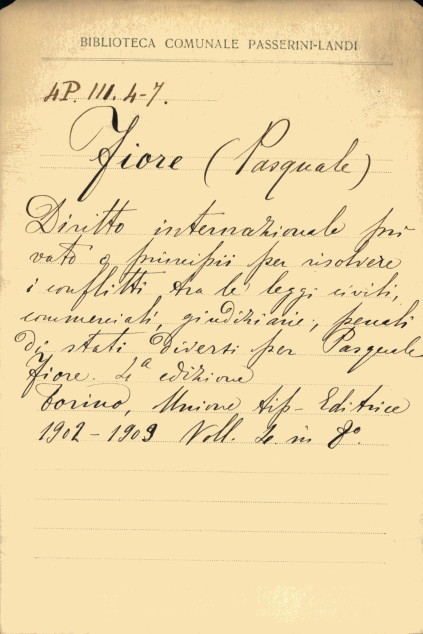 BIBLIOTECA COMUNALE PASSERINI-LANDI
4P. III. 4-7.
Fiore (Pasquale)
Diritto internazionale pri
vato o principii per risolvere
i conflitti tra le leggi civili,
commerciali, giudiziarie, penali
di stati diversi per Pasquale
Fiore. 4a edizione
Torino, Unione Tip-Editrice
1902-1909 Voll. 4. in 8º.